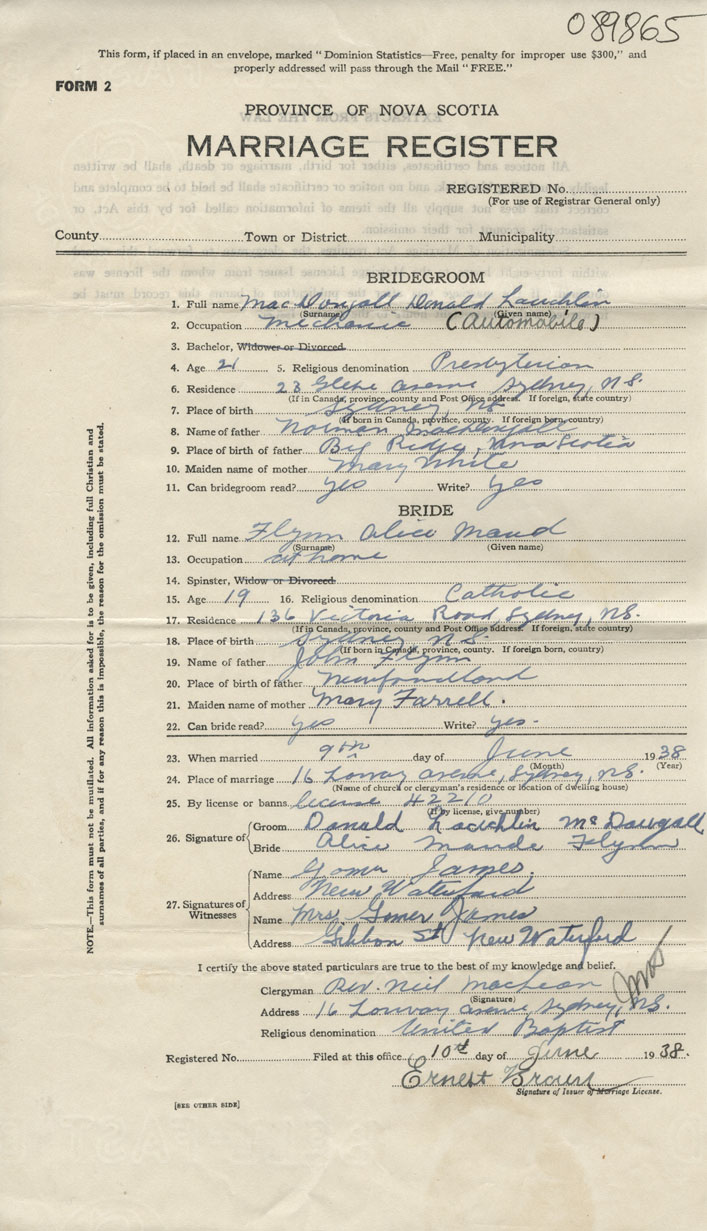 089865
This form, if placed in an envelope, marked "Dominion Statistics—Free, penalty for improper use $300," and
properly addressed will pass through the Mail "FREE."
FORM 2
PROVINCE OF NOVA SCOTIA
MARRIAGE REGISTER
REGISTERED No.
(For use of Registrar General only)
County Town or District Municipality
BRIDEGROOM
1. Full name MacDougall Donald Lauchlin
(Surname) (Given name)
2. Occupation Mechanic (Automobile)
3. Bachelor, Widower or Divorced
4. Age 21 5. Religious denomination Presbyterian
6. Residence 23 Glebe avenue Sydney, N.S.
(If in Canada, province, county and Post Office address. If foreign, state country)
7. Place of birth Sydney, NS
(If born in Canada, province, county. If foreign born, country)
8. Name of father Norman MacDougall
9. Place of birth of father Big Ridge, Nova Scotia
10. Maiden name of mother Mary White
11. Can bridegroom read? yes Write? yes
BRIDE
12. Full name Flynn Alice Maud
(Surname) (Given name)
13. Occupation at home
14. Spinster, Widow or Divorced
15. Age 19 16. Religious denomination Catholic
17. Residence 136 Victoria Road, Sydney, NS
(If in Canada, province, county and Post Office address. If foreign, state country)
18. Place of birth Sydney N.S.
(If born in Canada, province, county. If foreign born, country)
19. Name of father John Flynn
20. Place of birth of father Newfoundland
21. Maiden name of mother Mary Farrell.
22. Can bride read? yes Write? yes-
23. When married 9th day of June 1938
(Month) (Year)
24. Place of marriage 16 Lorway avenue, Sydney, N.S.
(Name of church or clergyman's residence or location of dwelling house)
25. By license or banns license #2210
(If by license, give number)
26. Signature of Groom Donald Lauchlin McDougall
Bride Alice Maude Flynn
27. Signatures of Witnesses Name Gomer James,
Address New Waterford
Name Mrs. Gomer James
Address Gibbon St New Waterford
NOTE.—This form must not be mutilated. All information asked for is to be given, including full Christian and
surnames of all parties, and if for any reason this is impossible, the reason for the omission must be stated.
I certify the above stated particulars are true to the best of my knowledge and belief.
Clergyman Rev. Neil MacLean
(Signature)
Address 16 Lorway avenue Sydney, N.S.
Religious denomination United Baptist
Registered No. Filed at this office 10th day of June 1938.
Ernest Brown
Signature of Issuer of Marriage License.
[SEE OTHER SIDE]